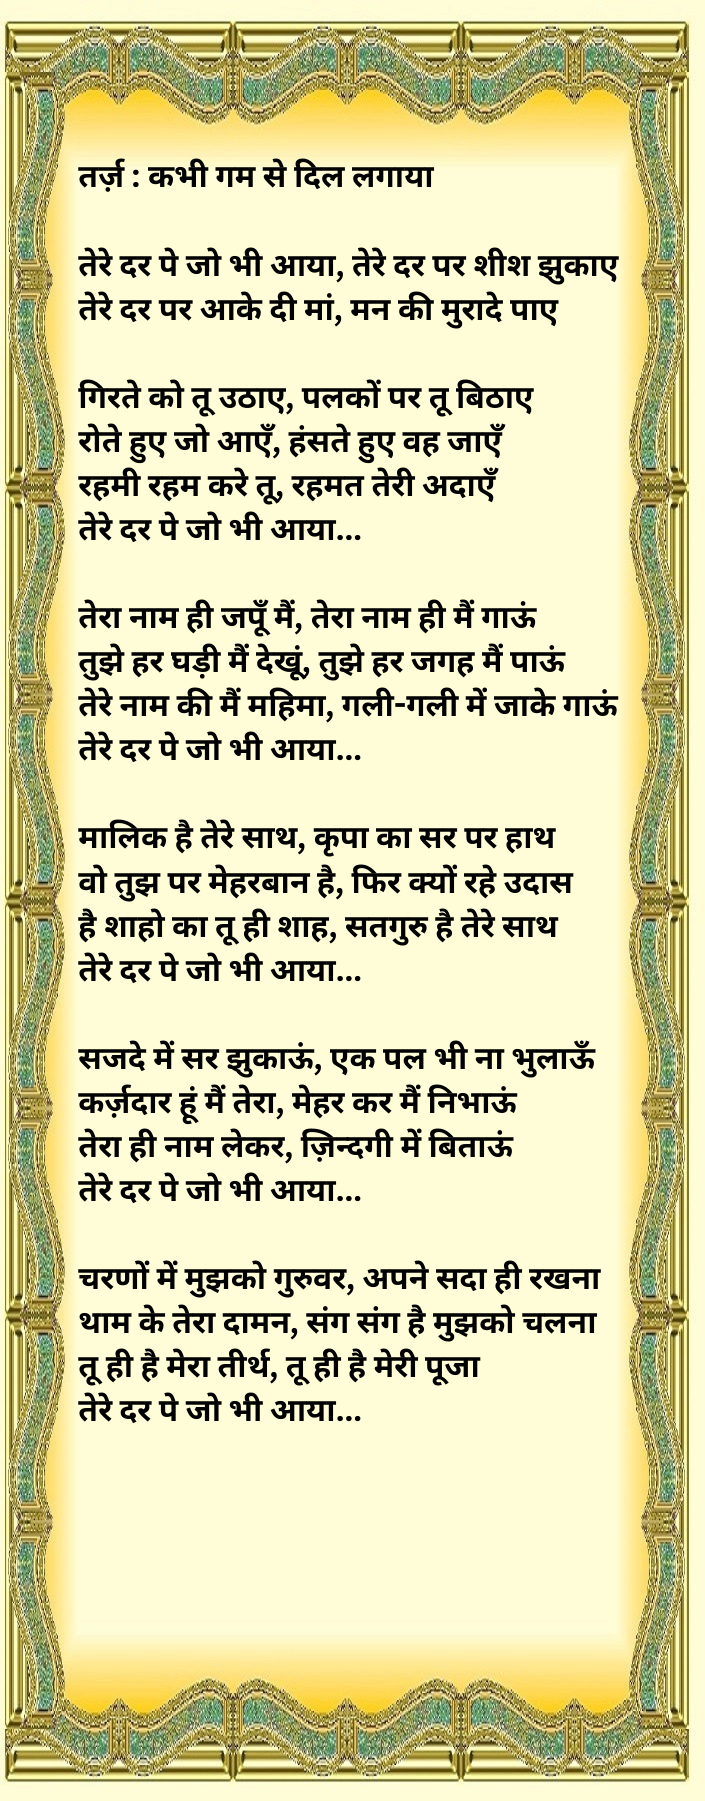 तर्ज़ : कभी गम से दिल लगाया
तेरे दर पे जो भी आया, तेरे दर पर शीश झुकाए
तेरे दर पर आके दी मां, मन की मुरादे पाए
गिरते को तू उठाए, पलकों पर तू बिठाए
रोते हुए जो आएँ, हंसते हुए वह जाएँ
रहमी रहम करे तू, रहमत तेरी अदाएँ
तेरे दर पे जो भी आया...
तेरा नाम ही जपूँ मैं, तेरा नाम ही मैं गाऊं
तुझे हर घड़ी मैं देखूं, तुझे हर जगह मैं पाऊं
तेरे नाम की मैं महिमा, गली-गली में जाके गाऊं
तेरे दर पे जो भी आया...
मालिक है तेरे साथ, कृपा का सर पर हाथ
वो तुझ पर मेहरबान है, फिर क्यों रहे उदास
है शाहो का तू ही शाह, सतगुरु है तेरे साथ
तेरे दर पे जो भी आया...
सजदे में सर झुकाऊं, एक पल भी ना भुलाऊँ
कर्ज़दार हूं मैं तेरा, मेहर कर मैं निभाऊं
तेरा ही नाम लेकर, ज़िन्दगी में बिताऊं
तेरे दर पे जो भी आया...
चरणों में मुझको गुरुवर, अपने सदा ही रखना
थाम के तेरा दामन, संग संग है मुझको चलना
तू ही है मेरा तीर्थ, तू ही है मेरी पूजा
तेरे दर पे जो भी आया...